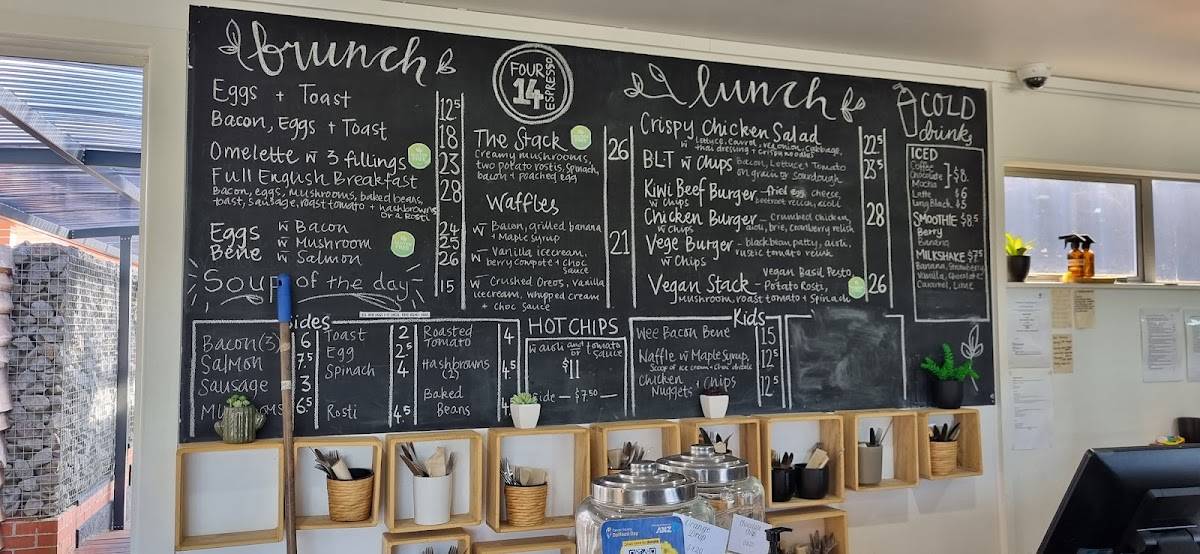 brunch
Eggs + Toast 12⁵
Bacon, Eggs + Toast 18
Omelette w̄ 3 fillings 23
Full English Breakfast 28
Bacon, eggs, mushrooms, baked beans,
toast, sausage, roast tomato + hashbrowns
or a Rosti
Eggs Bene
w̄ Bacon 24
w̄ Mushroom 25
w̄ Salmon 26
Soup of the day 15
FOUR
14
ESPRESSO
The Stack 26
Creamy mushrooms,
two potato rostis, spinach,
bacon + poached egg
Waffles 21
w̄ Bacon, grilled banana
+ Maple syrup
w̄ Vanilla icecream,
berry compote + choc
sauce
w̄ Crushed Oreos, vanilla
icecream, whipped cream
+ choc sauce
lunch
Crispy Chicken Salad 22⁵
w̄ lettuce, carrot, red onion, cabbage,
thai dressing + crispy noodles
BLT w̄ chips bacon, lettuce + tomato 23⁵
on grain or sourdough
Kiwi Beef Burger – fried egg, cheese
w̄ chips beetroot relish, aioli
Chicken Burger – crumbed chicken, 28
w̄ chips aioli, brie, cranberry relish
Vege Burger – black bean patty, aioli,
w̄ Chips rustic tomato relish
Vegan Stack – vegan Basil Pesto, 26
Potato Rosti,
mushroom, roast tomato + Spinach
COLD
drinks
ICED
Coffee
Chocolate } $8.
Mocha
Latte $6
Long Black $5
SMOOTHIE $8.5
Berry
Banana
MILKSHAKE $7.5
Banana, Strawberry
Vanilla, Chocolate
Caramel, Lime
Sides
Bacon (3) 6
Salmon 7.5
Sausage 3
6.5
Toast 2
Egg 2⁵
Spinach 4
Rosti 4.5
Roasted
Tomato 4
Hashbrowns
(2) 4.5
Baked
Beans 4
HOT CHIPS
w̄ aioli and/or tomato
sauce
$11
side — $7.50 —
Kids
Wee Bacon Bene 15
Waffle w̄ Maple Syrup, 12⁵
Scoop of ice cream + choc drizzle
Chicken
Nuggets + Chips 12⁵
Daffodil Day
ANZ